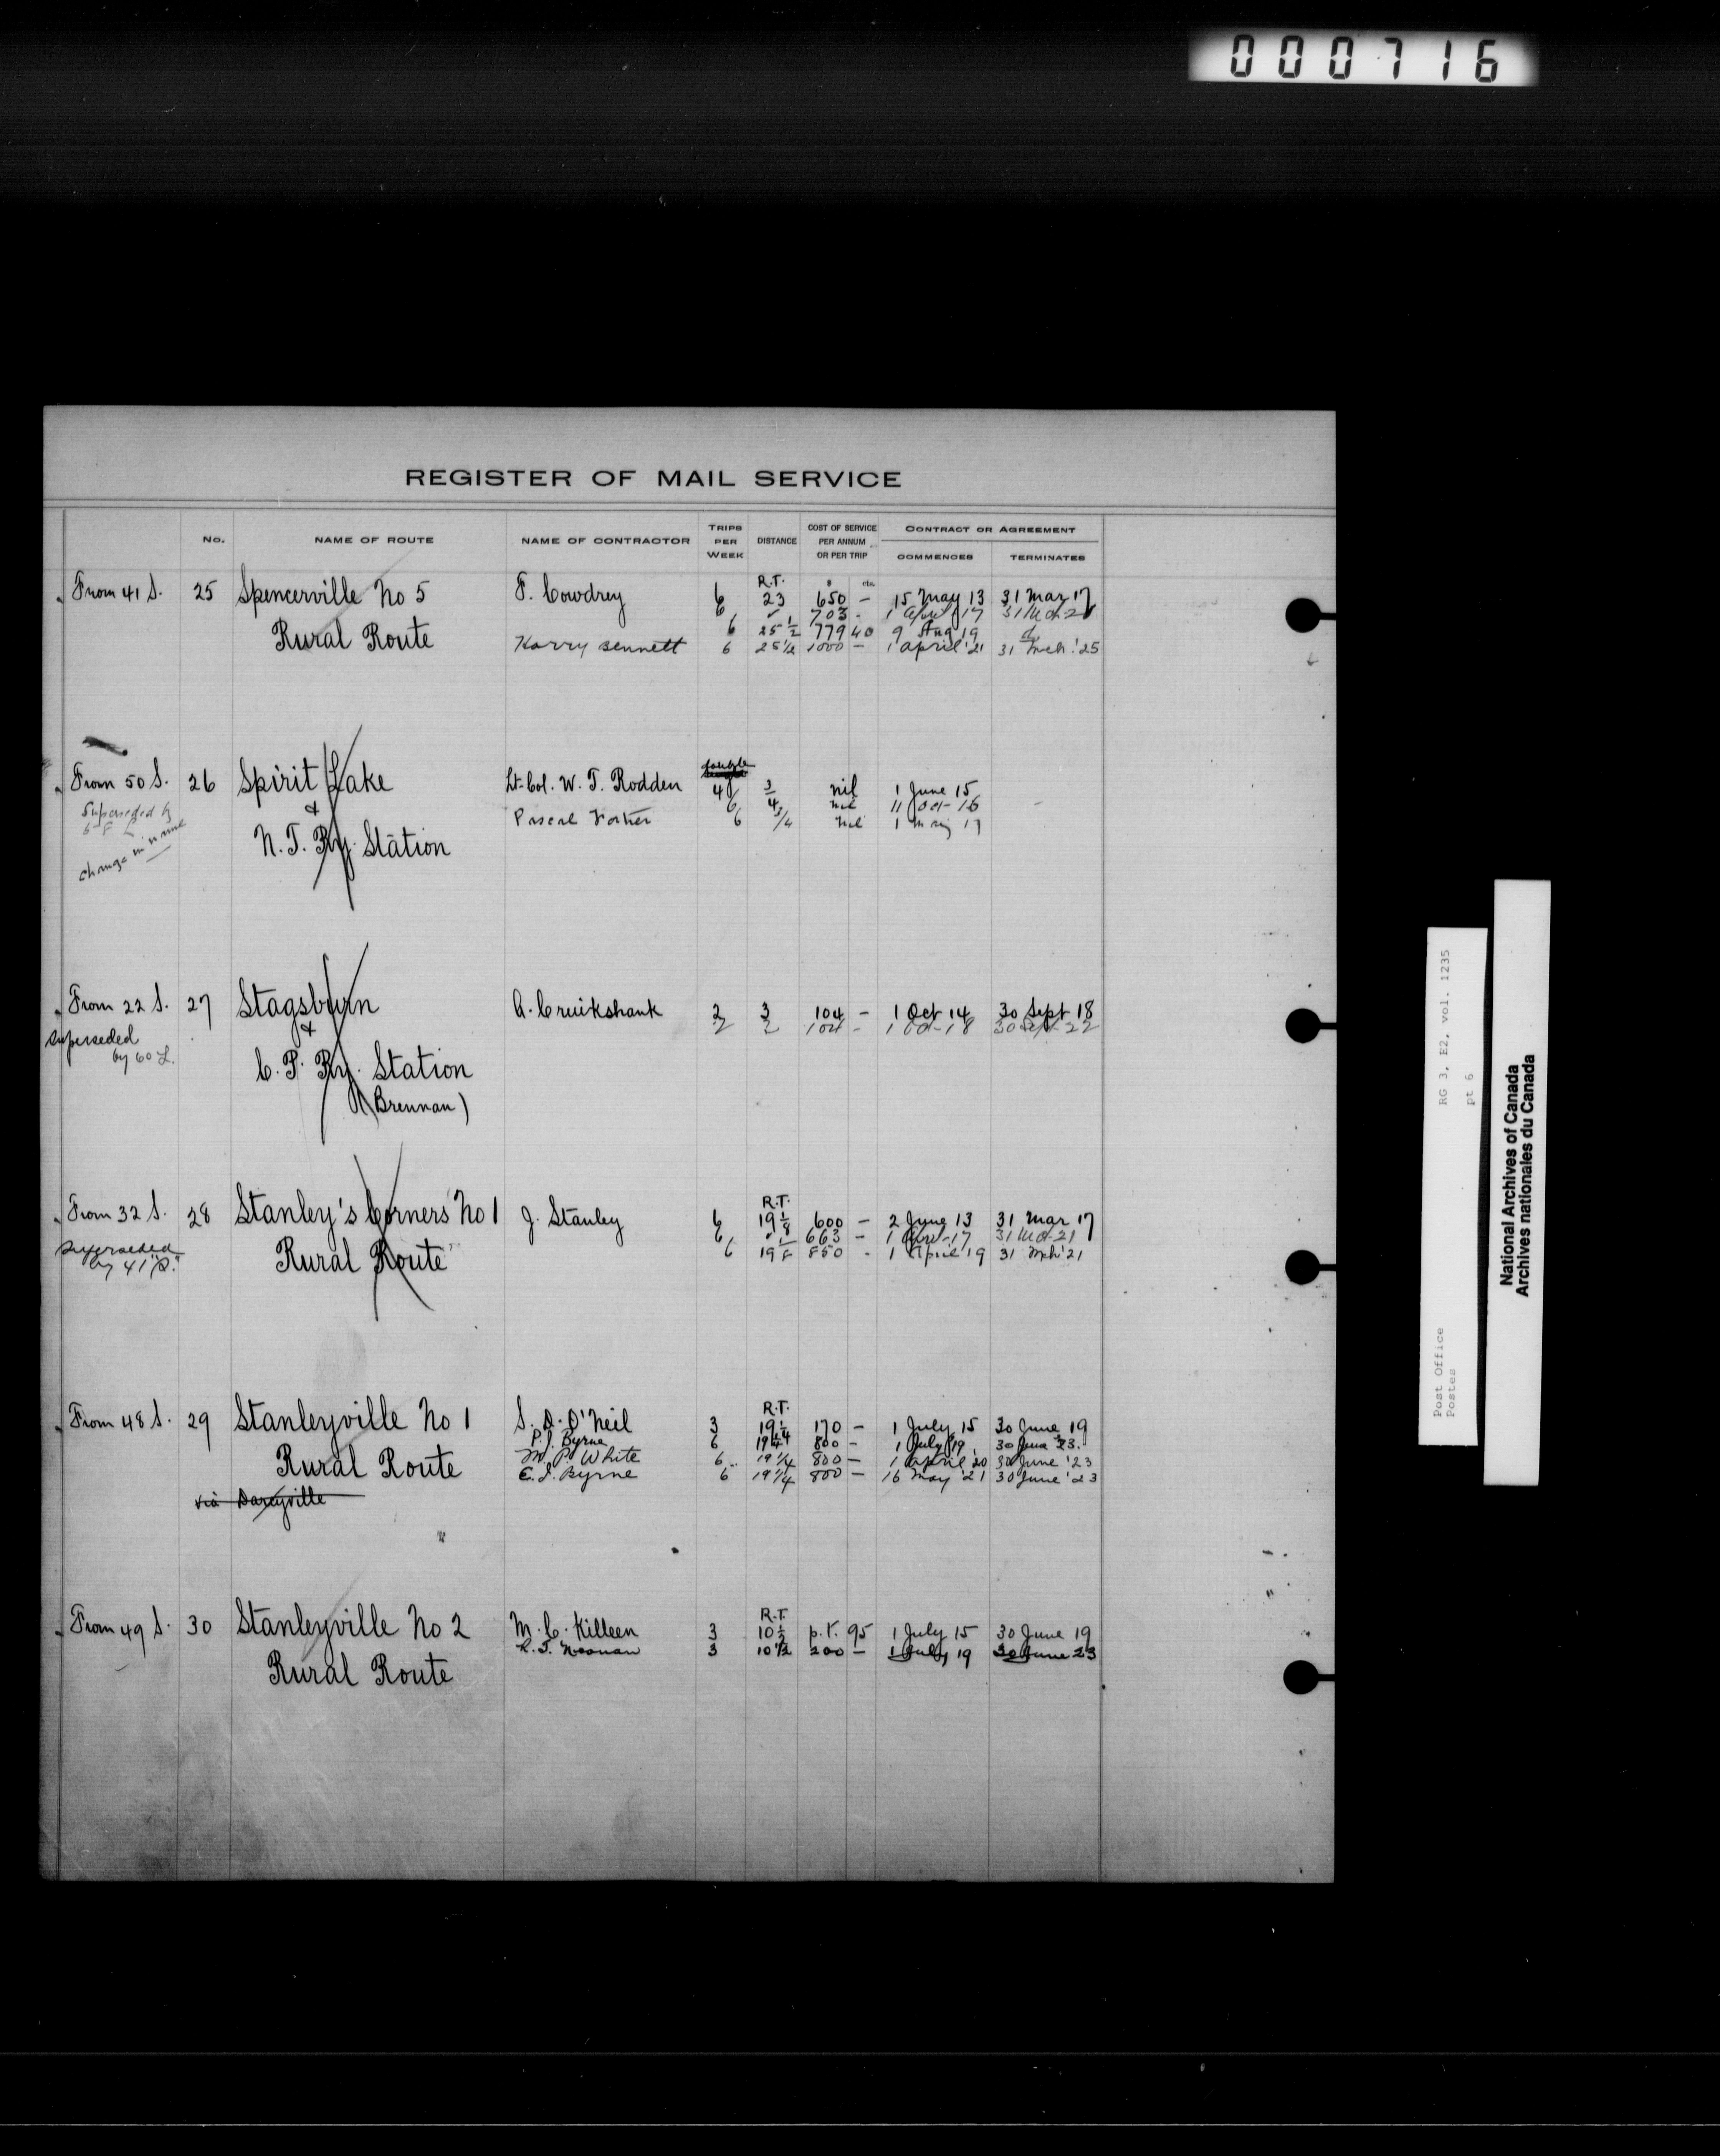 000716
REGISTER OF MAIL SERVICE
No. NAME OF ROUTE NAME OF CONTRACTOR TRIPS PER WEEK DISTANCE COST OF SERVICE PER ANNUM OR PER TRIP CONTRACT OR AGREEMENT COMMENCES TERMINATES
R.T. cts.
From 41 S. 25 Spencerville No 5 F. Cowdrey 6 23 650 – 15 May 13 31 Mar 17
6 703 - 1 April 17 31 Mch 21
Rural Route 6 25 1/2 779 40 9 Aug 19
Harry Bennett 6 25 1/2 1000 – 1 april '21 31 Mch '25
From 50 S. 26 Spirit Lake Lt-Col. W. T. Rodden 4 3/4 nil 1 June 15
Superseded by & 6 nil 11 Oct- 16
6 F L Pascal 6 3/4 nil 1 May 17
change in name N. T. Ry. Station
From 22 S. 27 Stagsburn A. Cruikshank 2 3 104 – 1 Oct 14 30 Sept 18
& 2 104 - 1 Oct- 18 30 Sept- 22
Superseded
by 60 L. C. P. Ry. Station
(Brennan)
R.T.
From 32 S. 28 Stanley's Corners No 1 J. Stanley 6 19 1/8 600 – 2 June 13 31 Mar 17
6 663 – 1 Apr-17 31 Mch 21
Superseded Rural Route 6 19 1/8 850 - 1 April 19 31 Mch '21
by 41 "S."
R.T.
From 48 S. 29 Stanleyville No 1 S. D. O'Neil 3 19 1/4 170 – 1 July 15 30 June 19
P. J. Byrne 6 19 1/4 800 – 1 July 19 30 June 23.
Rural Route M. P. White 6 19 1/4 800 – 1 April '20 30 June '23
E. J. Byrne 6 19 1/4 800 – 16 May '21 30 June '23
via Darcyville
R.T.
From 49 S. 30 Stanleyville No 2 M. C. Killeen 3 10 1/2 p.t. 95 1 July 15 30 June 19
R. T. Noonan 3 10 1/2 200 – 1 July 19 30 June 23
Rural Route
RG 3, E2, vol. 1235
pt 6
Post Office
Postes
National Archives of Canada
Archives nationales du Canada